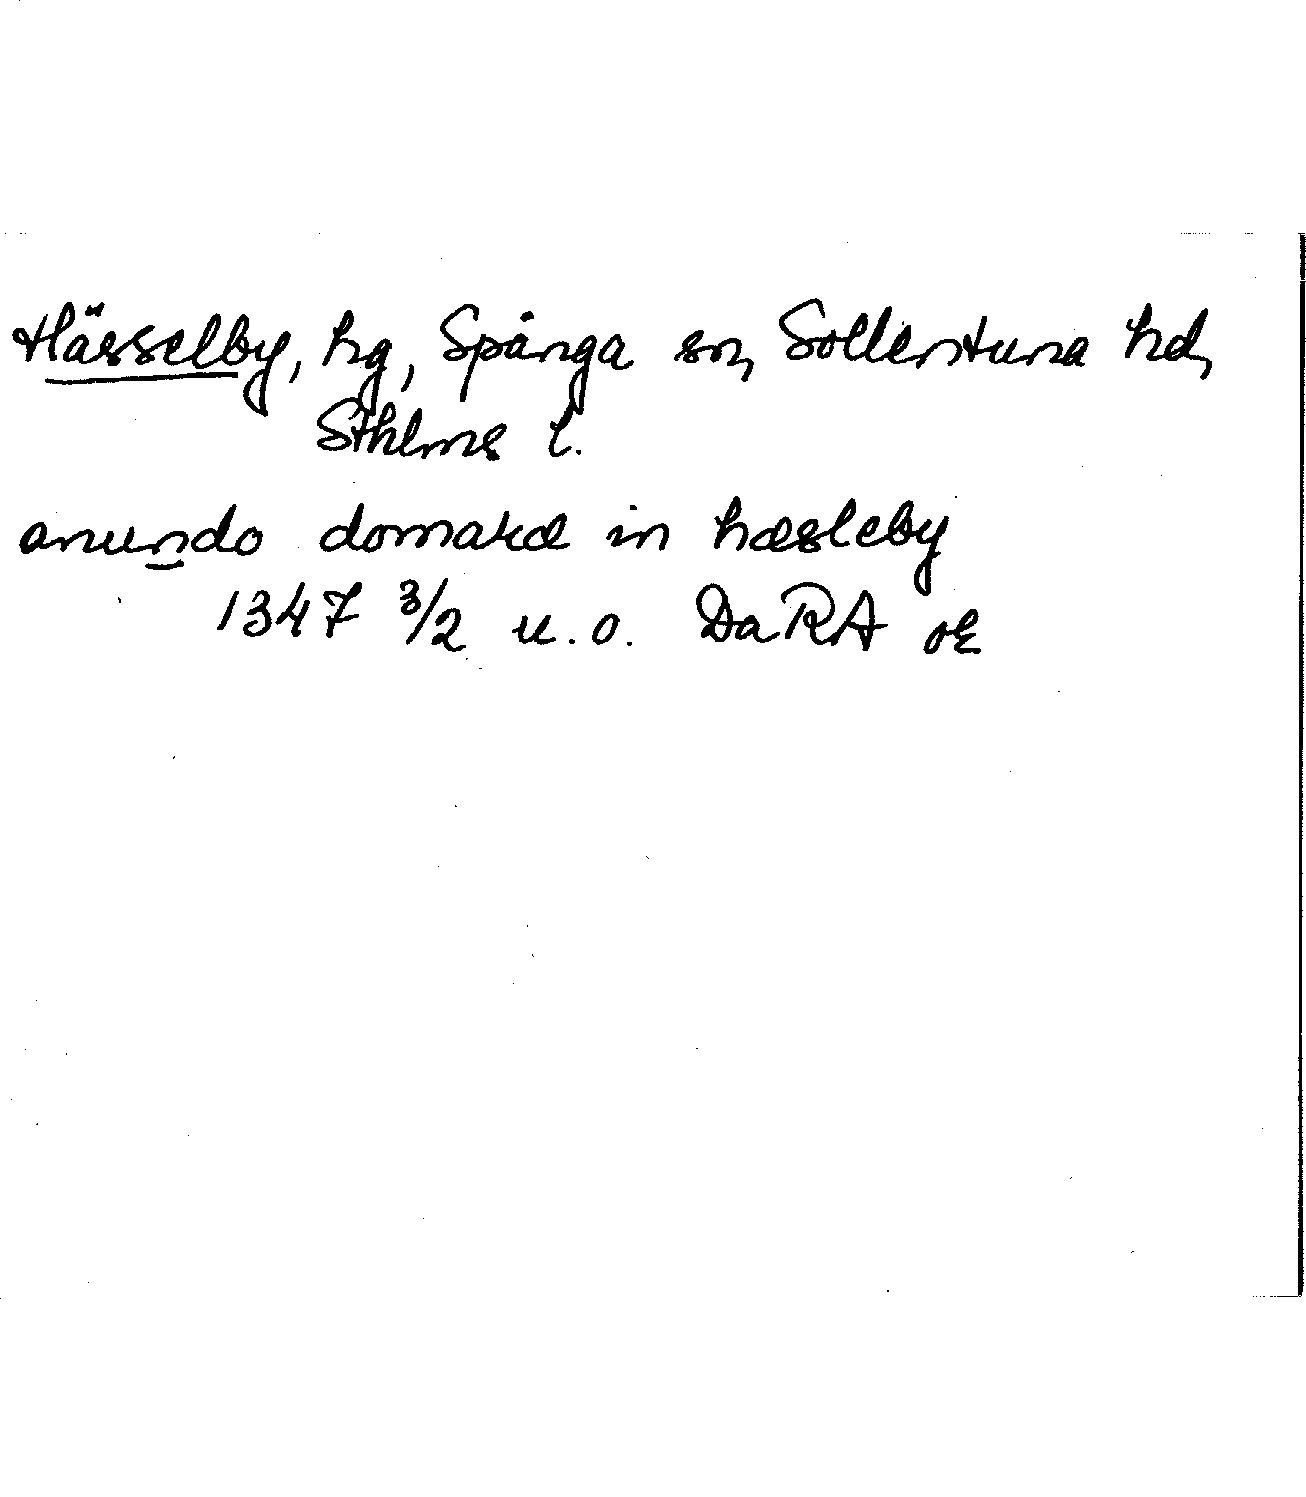 Hässelby, hg, Spånga sn, Sollentuna hd,
Sthlms l.
anundo domaræ in hæsleby
1347 3/2 u.o. DaRA oE